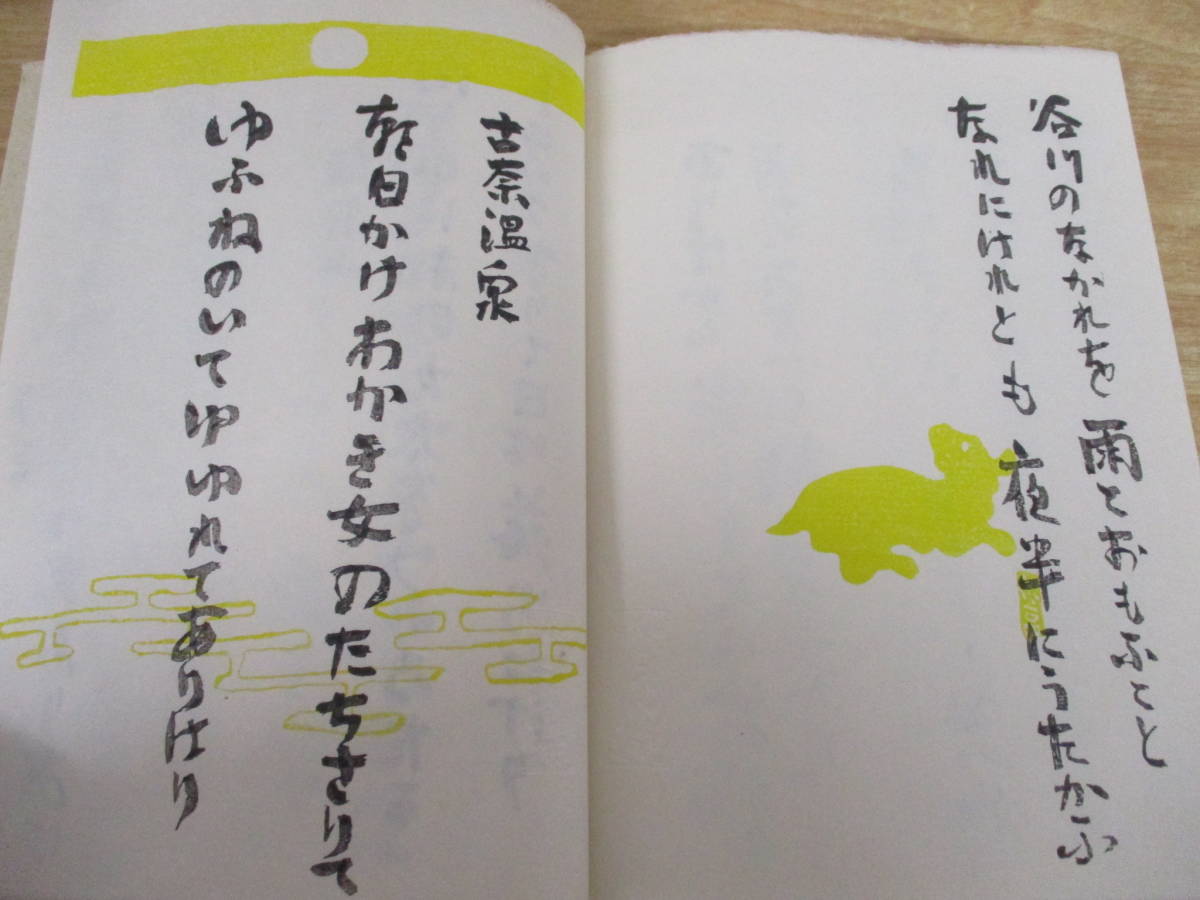 谷川のなかれを雨とおもふこと
なれにけれとも夜半にうたかふ
古奈温泉
朝日かけわかき女のたちさりて
ゆふねのいてゆゆれてありけり